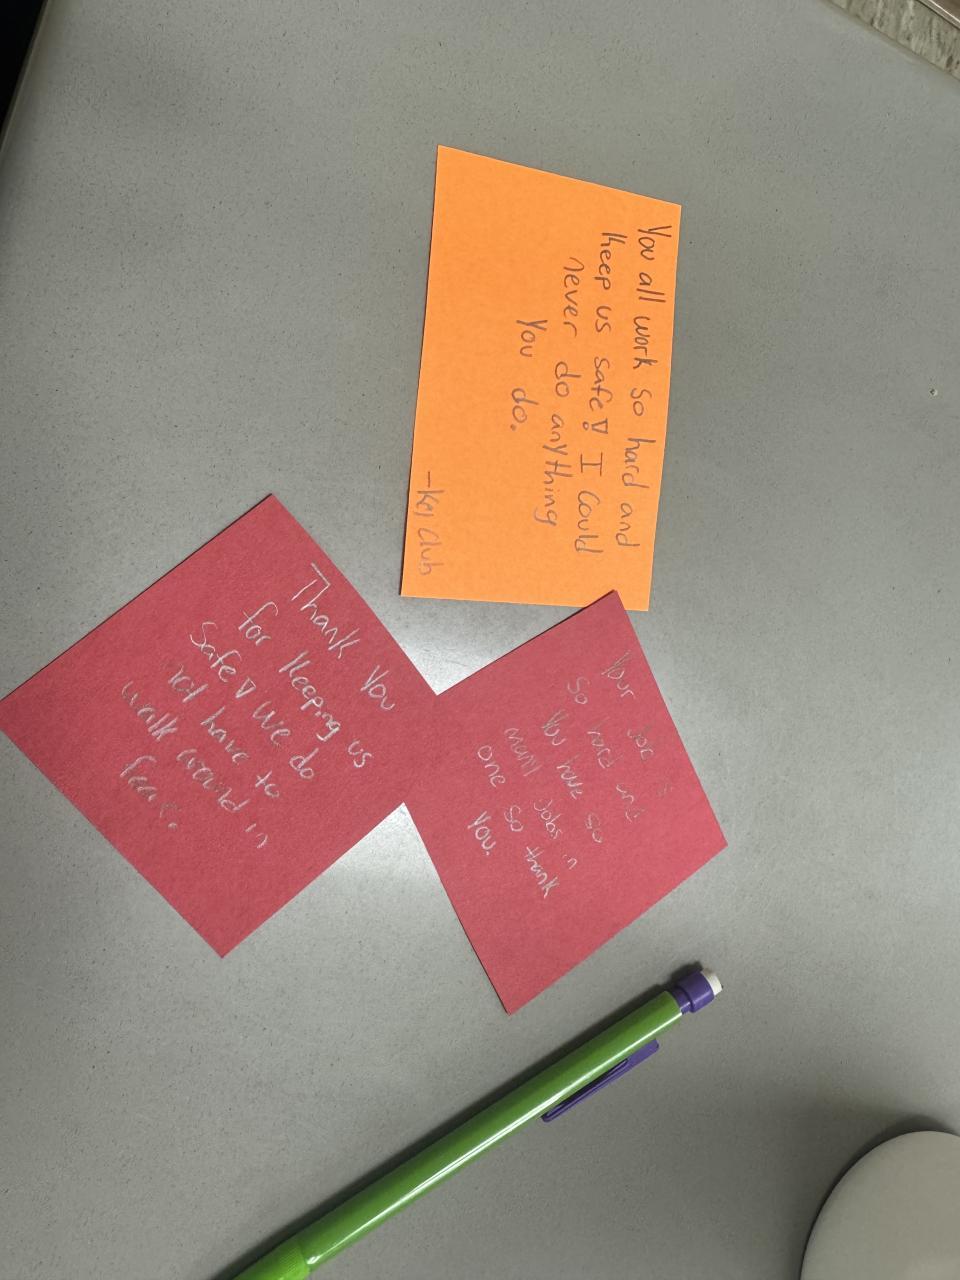 You all work so hard and
keep us safe! I could
never do anything
You do.
-Key Club
Thank You
for keeping us
safe! We do
not have to
walk around in
fear.
Your Job is
so hard and
You have so
many Jobs in
one so thank
You.